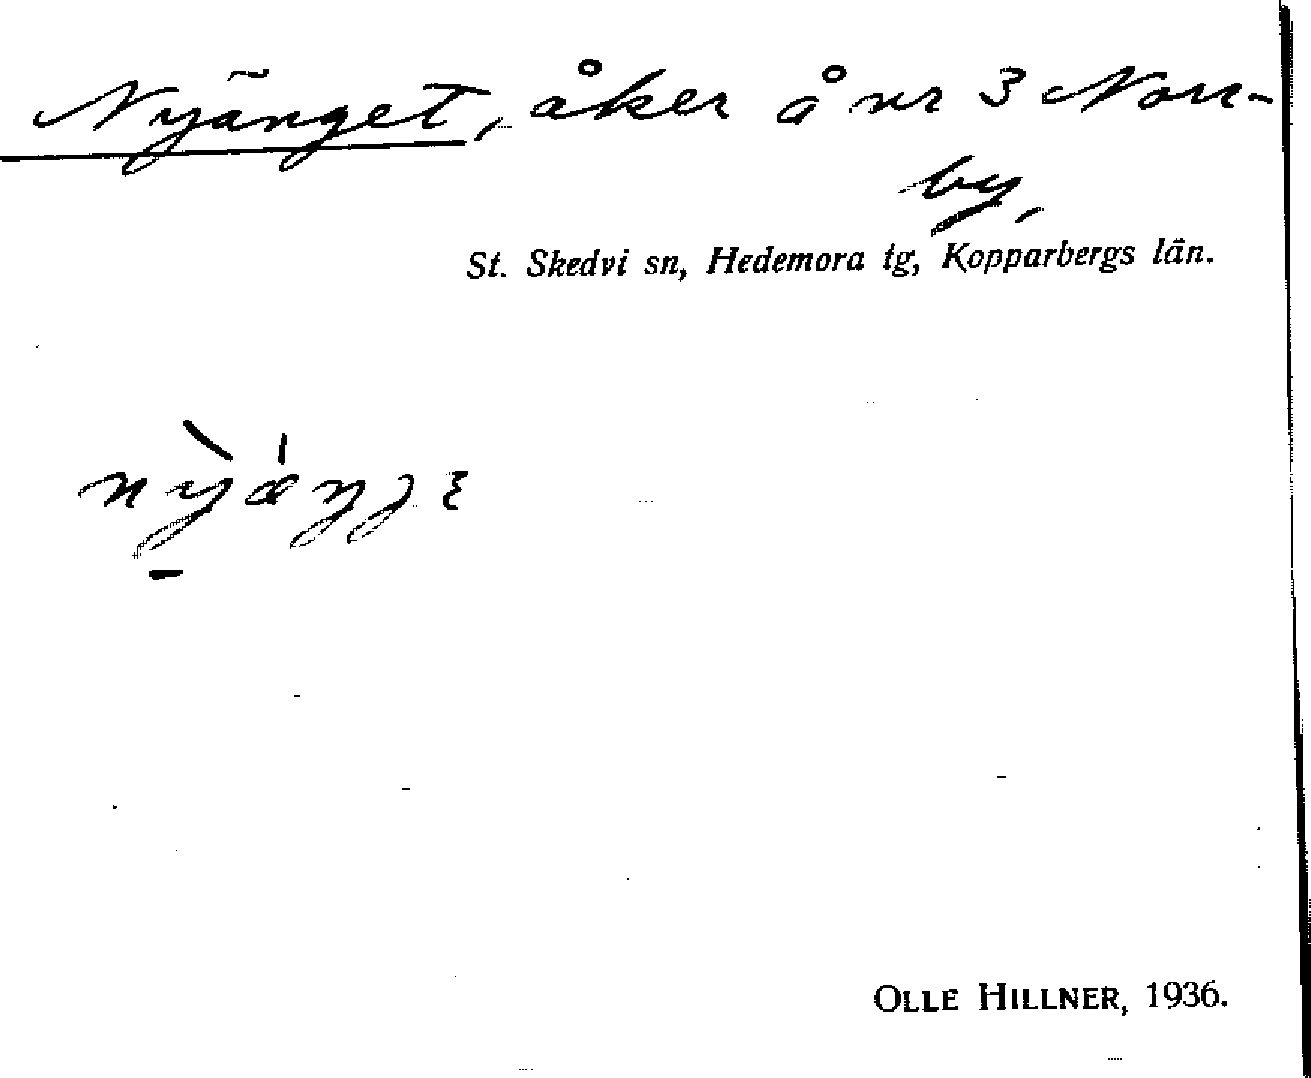 Nyänget, åker å nr 3 Norr-
by,
St. Skedvi sn, Hedemora tg, Kopparbergs län.
OLLE HILLNER, 1936.